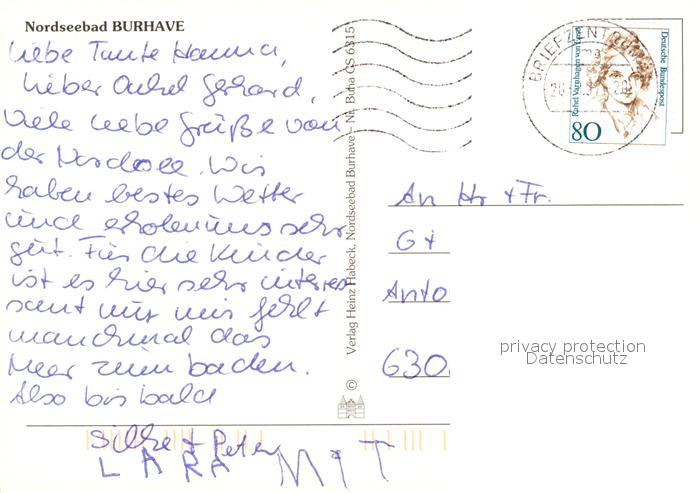 Nordseebad BURHAVE
Liebe Tante Hanna,
Lieber Onkel Gerhard,
Viele liebe Grüße von
der Nordsee. Wir
haben bestes Wetter
und erholen uns sehr
gut. Für die Kinder
ist es hier sehr interes
sant nur mir fehlt
manchmal das
Meer zum baden.
Also bis bald
Silke + Peter
LARA MIT
Verlag Heinz Habeck, Nordseebad Burhave - Nr. Buha CS 6315
©
BRIEFZENTRUM
Deutsche Bundespost
Rahel Varnhagen von Ense
80
An Hr + Fr.
G
Anto
630
privacy protection
Datenschutz